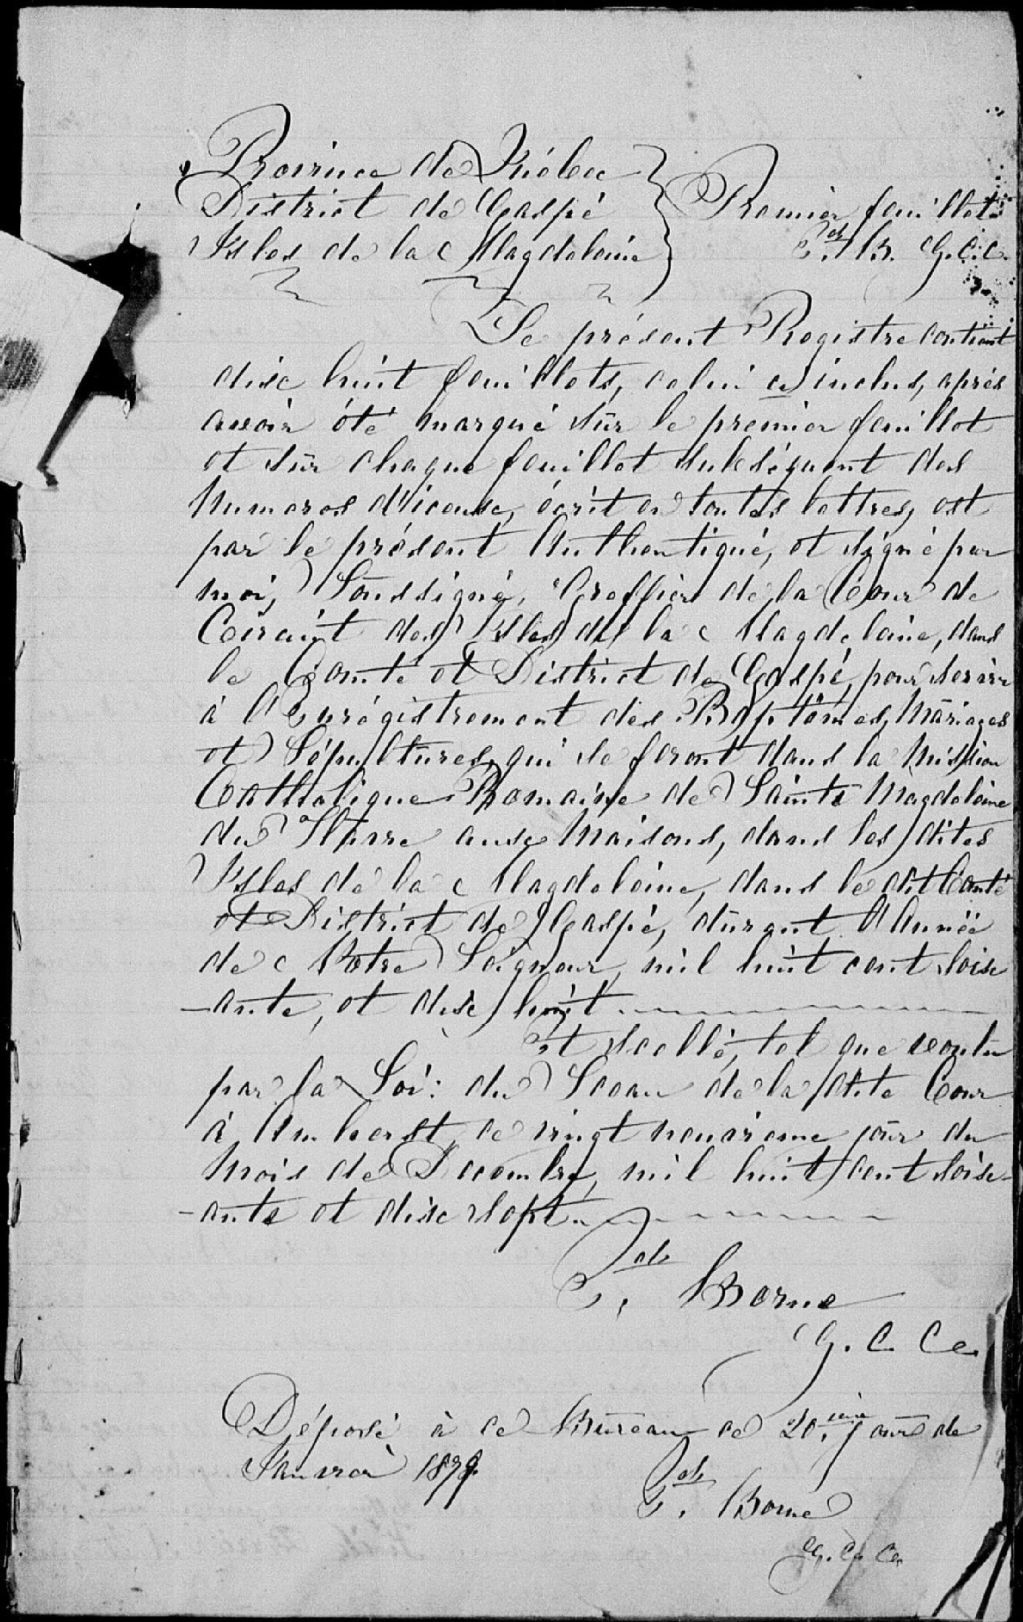 Province de Québec
District de Gaspé
Isles de la Magdeleine
Premier feuillet
J.ph B. G.C.C.
Le présent Registre contient
dix huit feuillets, celui ci inclus, après
avoir été marqué sur le premier feuillet
et sur chaque feuillet subséquent des
Numeros d'icense, écrit en toutes lettres, est
par le présent Authentiqué, et signé par
moi, Soussigné, Greffier de la Cour de
Circuit des Isles de la Magdeleine, dans
le Comté et District de Gaspé, pour servir
à l'Enrégistrement des Baptêmes, Mariages
et Sépultures, qui se feront dans la Mission
Catholique Romaine de Sainte Magdeleine
du Hâvre aux Maisons, dans les dites
Isles de la Magdeleine, dans le dit Comté
et District de Gaspé, durant l'Année
de Notre Seigneur, mil huit cent soix
-ante, et dix huit.
Et scellé, tel que voulu
par la Loi: du Sceau de la dite Cour
à Amherst, ce vingt neuvieme jour du
Mois de Decembre, mil huit cent soix-
-ante et dix sept.
Borne
G. C. C.
Déposé à ce Bureau ce 20.ième jour de
Janvier 1879.
Borne
G. C. C.